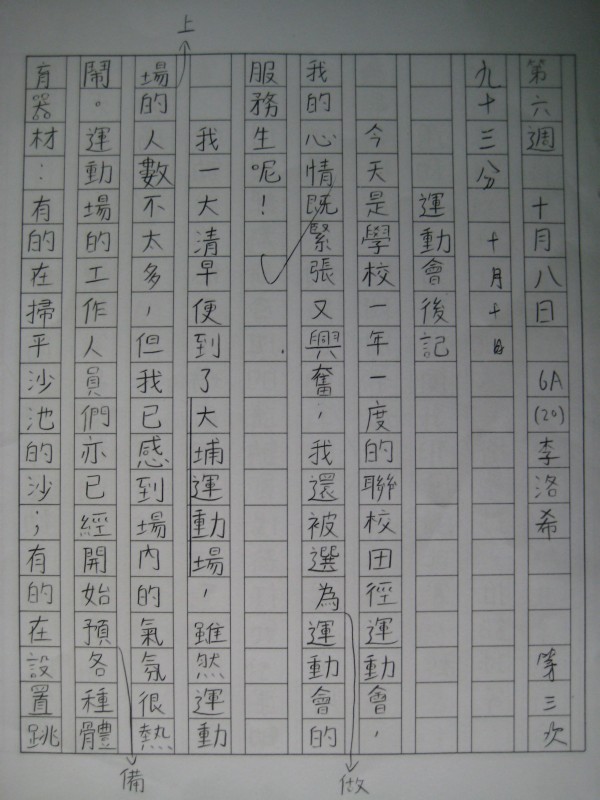 第六週 十月八日 6A (20) 李洛希 第三次
九十三分 十月十日
運動會後記
今天是學校一年一度的聯校田徑運動會，
我的心情既緊張又興奮，我還被選為運動會的
服務生呢！
我一大清早便到了大埔運動場，雖然運動
場的人數不太多，但我已感到場內的氣氛很熱
鬧。運動場的工作人員們亦已經開始預各種體
育器材：有的在掃平沙池的沙；有的在設置跳
上
備
做